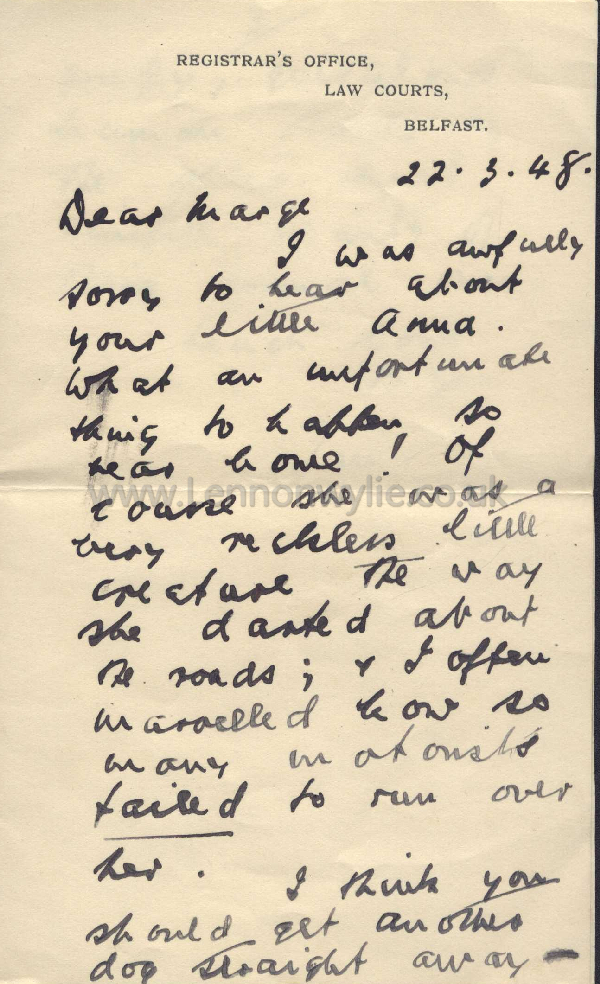 REGISTRAR'S OFFICE,
LAW COURTS,
BELFAST.
22.3.48.
Dear Marge
I was awfully
sorry to hear about
your little Anna.
What an unfortunate
thing to happen, so
near home! Of
course she was a
very reckless little
creature the way
she darted about
the roads; & I often
marvelled how so
many motorists
failed to run over
her. I think you
should get another
dog straight away –
www.Lennonwylie.co.uk